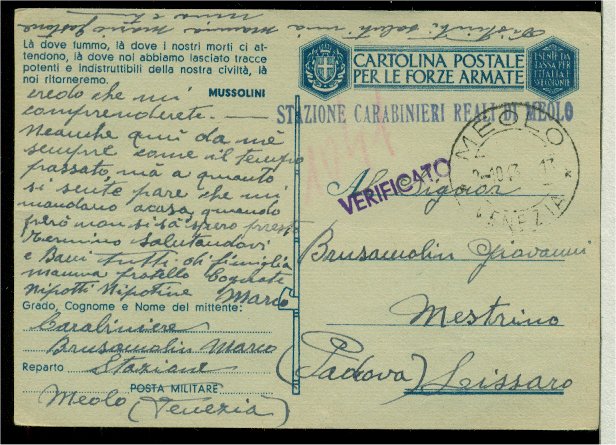 Là dove fummo, là dove i nostri morci ci at-
tendono, là dove noi abbiamo lasciato tracce
potenti e indistruttibili della nostra civiltà, là
noi ritorneremo.
MUSSOLINI
credo che mi
comprenderete.
Neanche quì da mè
sempre come il tempo
passato, mà a quanto
si sente pare che mi
mandano a casa, quando
però non si sà spero presto
Termino salutandovi
e Baci tutti di famiglia
mamma fratello Cognate
Nipotti Nipotine Marco
Grado, Cognome e Nome del mittente:
Carabiniere
Brusamolin Marco
Reparto Stazione
POSTA MILITARE
Meolo (Venezia)
CARTOLINA POSTALE
PER LE FORZE ARMATE
ESENTE DA
TASSA PER
L'ITALIA E
STAZIONE CARABINIERI REALI DI MEOLO
VERIFICATO
MEOLO
VENEZIA
Al Signor
Brusamolin Giovanni
Mestrino
(Padova) Lissaro